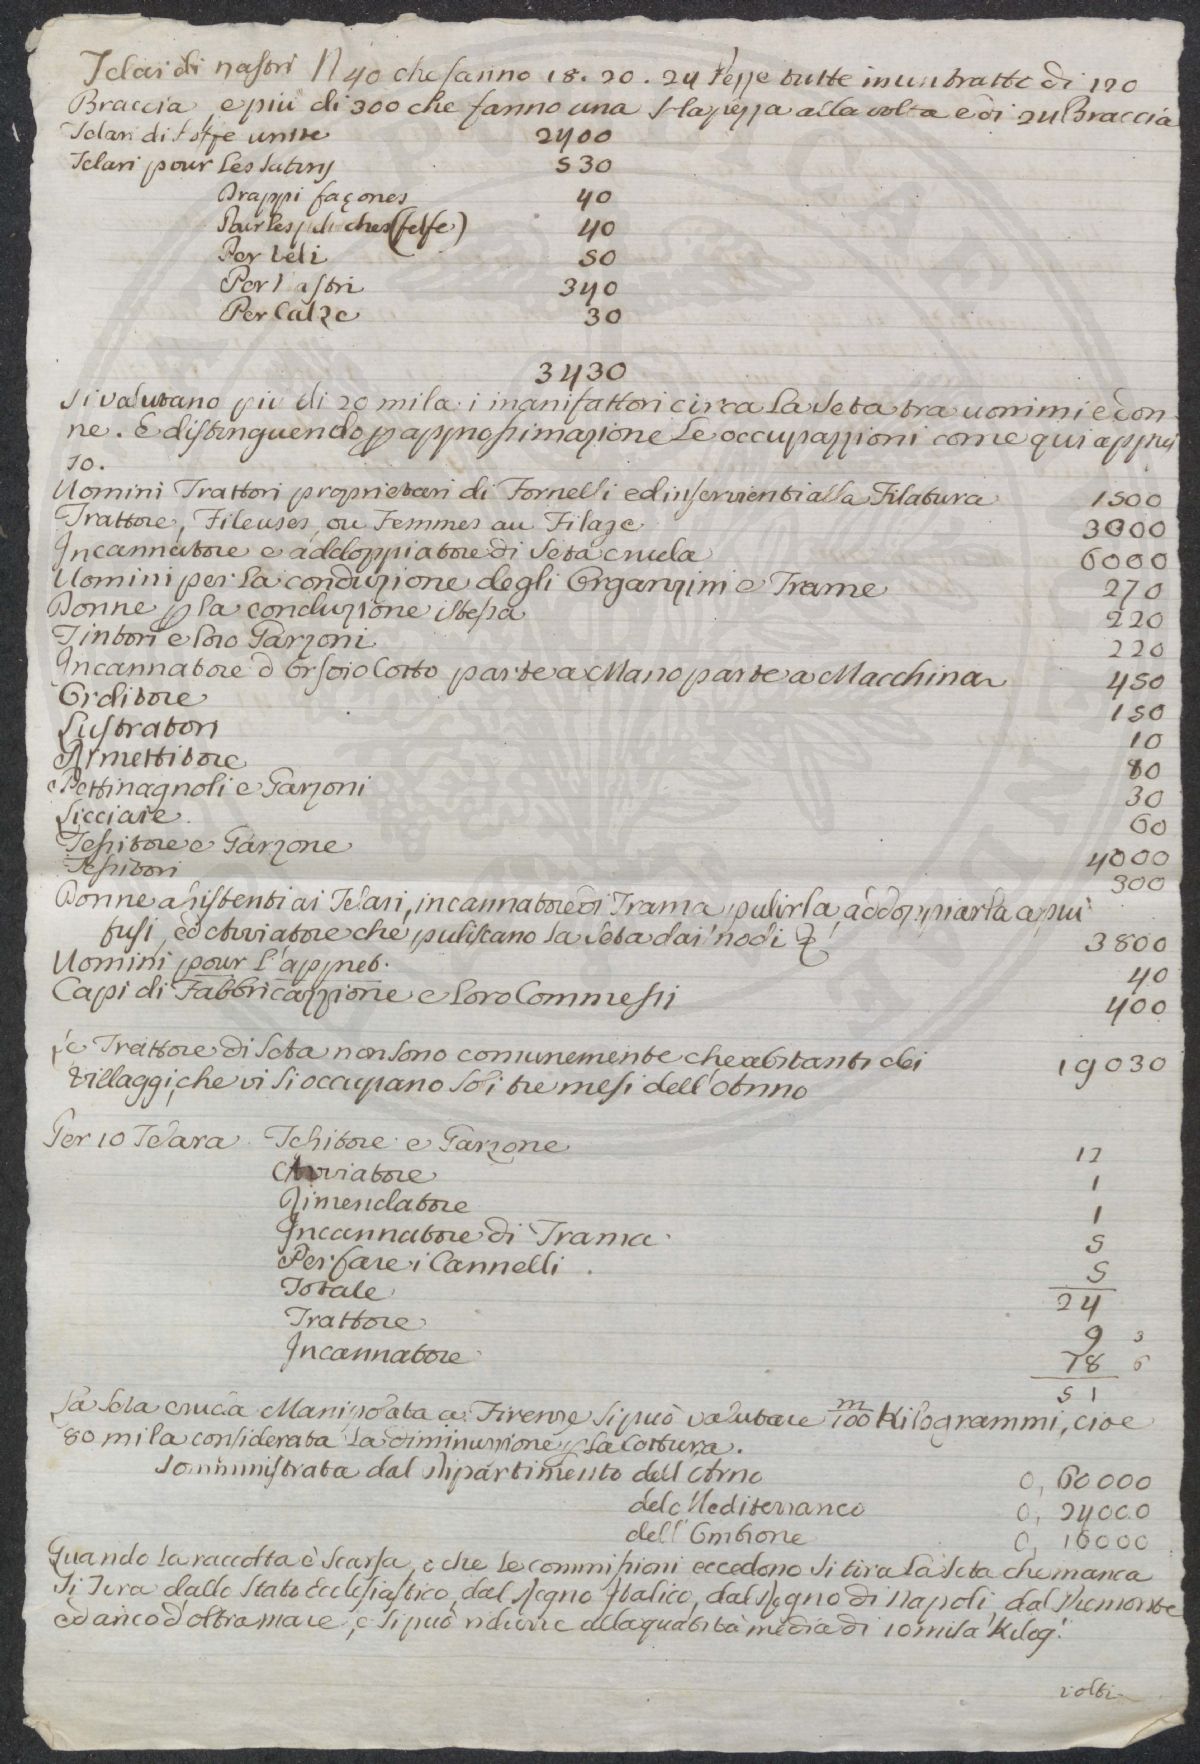 Telai di nastri N 40 che fanno 18. 20. 24 Pezze tutte in un tratto di 120
Braccia e più di 300 che fanno una pezza alla volta e di 24 Braccia
Telari di stoffe unite 2400
Telari pour les satins 530
Drappi façones 40
Pour les pluches (felfe) 40
Per Veli 50
Per Nastri 340
Per Calze 30
3430
Si valutano più di 20 mila i manifattori circa la Seta tra uomini e don-
ne. E distinguendo p approssimazione le occupazzioni come qui appres
so.
Uomini Trattori proprietari di Fornelli ed inservienti alla Filatura 1500
Trattore, Fileuses, ou Femmes au Filage 3000
Incannatore e addoppiatore di Seta cruda 6000
Uomini per la conduzione degli Organzini e Trame 270
Donne p la conduzione istessa 220
Tintori e loro Garzoni 220
Incannatore d'Orsoio Cotto parte a Mano parte a Macchina 450
Orditore 150
Lustratori 10
Rimettitore 80
Pettinagnoli e Garzoni 30
Licciaie 60
Tessitore e Garzone 4000
Tessitori 300
Donne assistenti ai Telari, incannatore di Trama pulirla, addoppiarla a più
fusi, ed Avviatore che puliscano la Seta dai nodi 3800
Uomini pour l'appret. 40
Capi di Fabbricazzione e loro Commessi 400
Le Trattore di Seta non sono comunemente che abitanti dei 19030
Villaggi, che vi si occupano soli tre mesi dell'Anno
Per 10 Telara Tessitore e Garzone 12
Avviatore 1
Rimendatore 1
Incannatore di Trama 5
Per fare i Cannelli 5
Totale 24
Trattore 9 3
Incannatore 18 6
51
La Seta cruda Manipolata a Firenze si può valutare m/100 Kilogrammi, cioe
80 mila considerata la diminuzione p la Cottura.
Somministrata dal Dipartimento dell'Arno 0, 60000
del Mediterraneo 0, 24000
dell'Ombrone 0, 16000
Quando la raccolta è scarsa, e che le commissioni eccedono si tira la Seta che manca
Si Tira dallo Stato Ecclesiastico, dal Regno Italico, dal Regno di Napoli dal Piemonte
ed anco d'oltramare, e si può ridurre alla quatità media di 10 mila Kilog.
volti